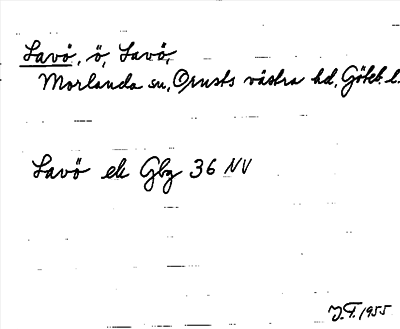 Lavö, ö, Lavö,
Morlanda sn, Orusts västra hd, Göteb. l.
Lavö ek Gbg 36 NV
J.F. 1955